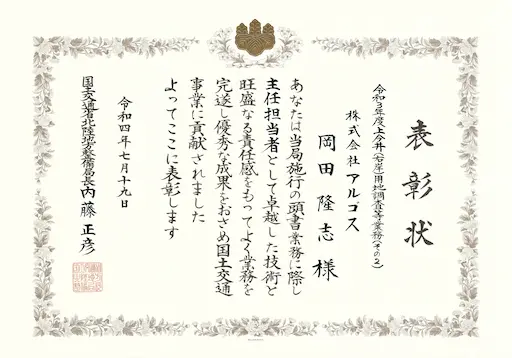 表彰状
令和3年度上今井(右岸)用地調査等業務(その2)
株式会社アルゴス
岡田隆志様
あなたは当局施行の頭書業務に際し
主任担当者として卓越した技術と
旺盛なる責任感をもってよく業務を
完遂し優秀な成果をおさめ国土交通
事業に貢献されました
よってここに表彰します
令和四年七月十九日
国土交通省北陸地方整備局長内藤正彦